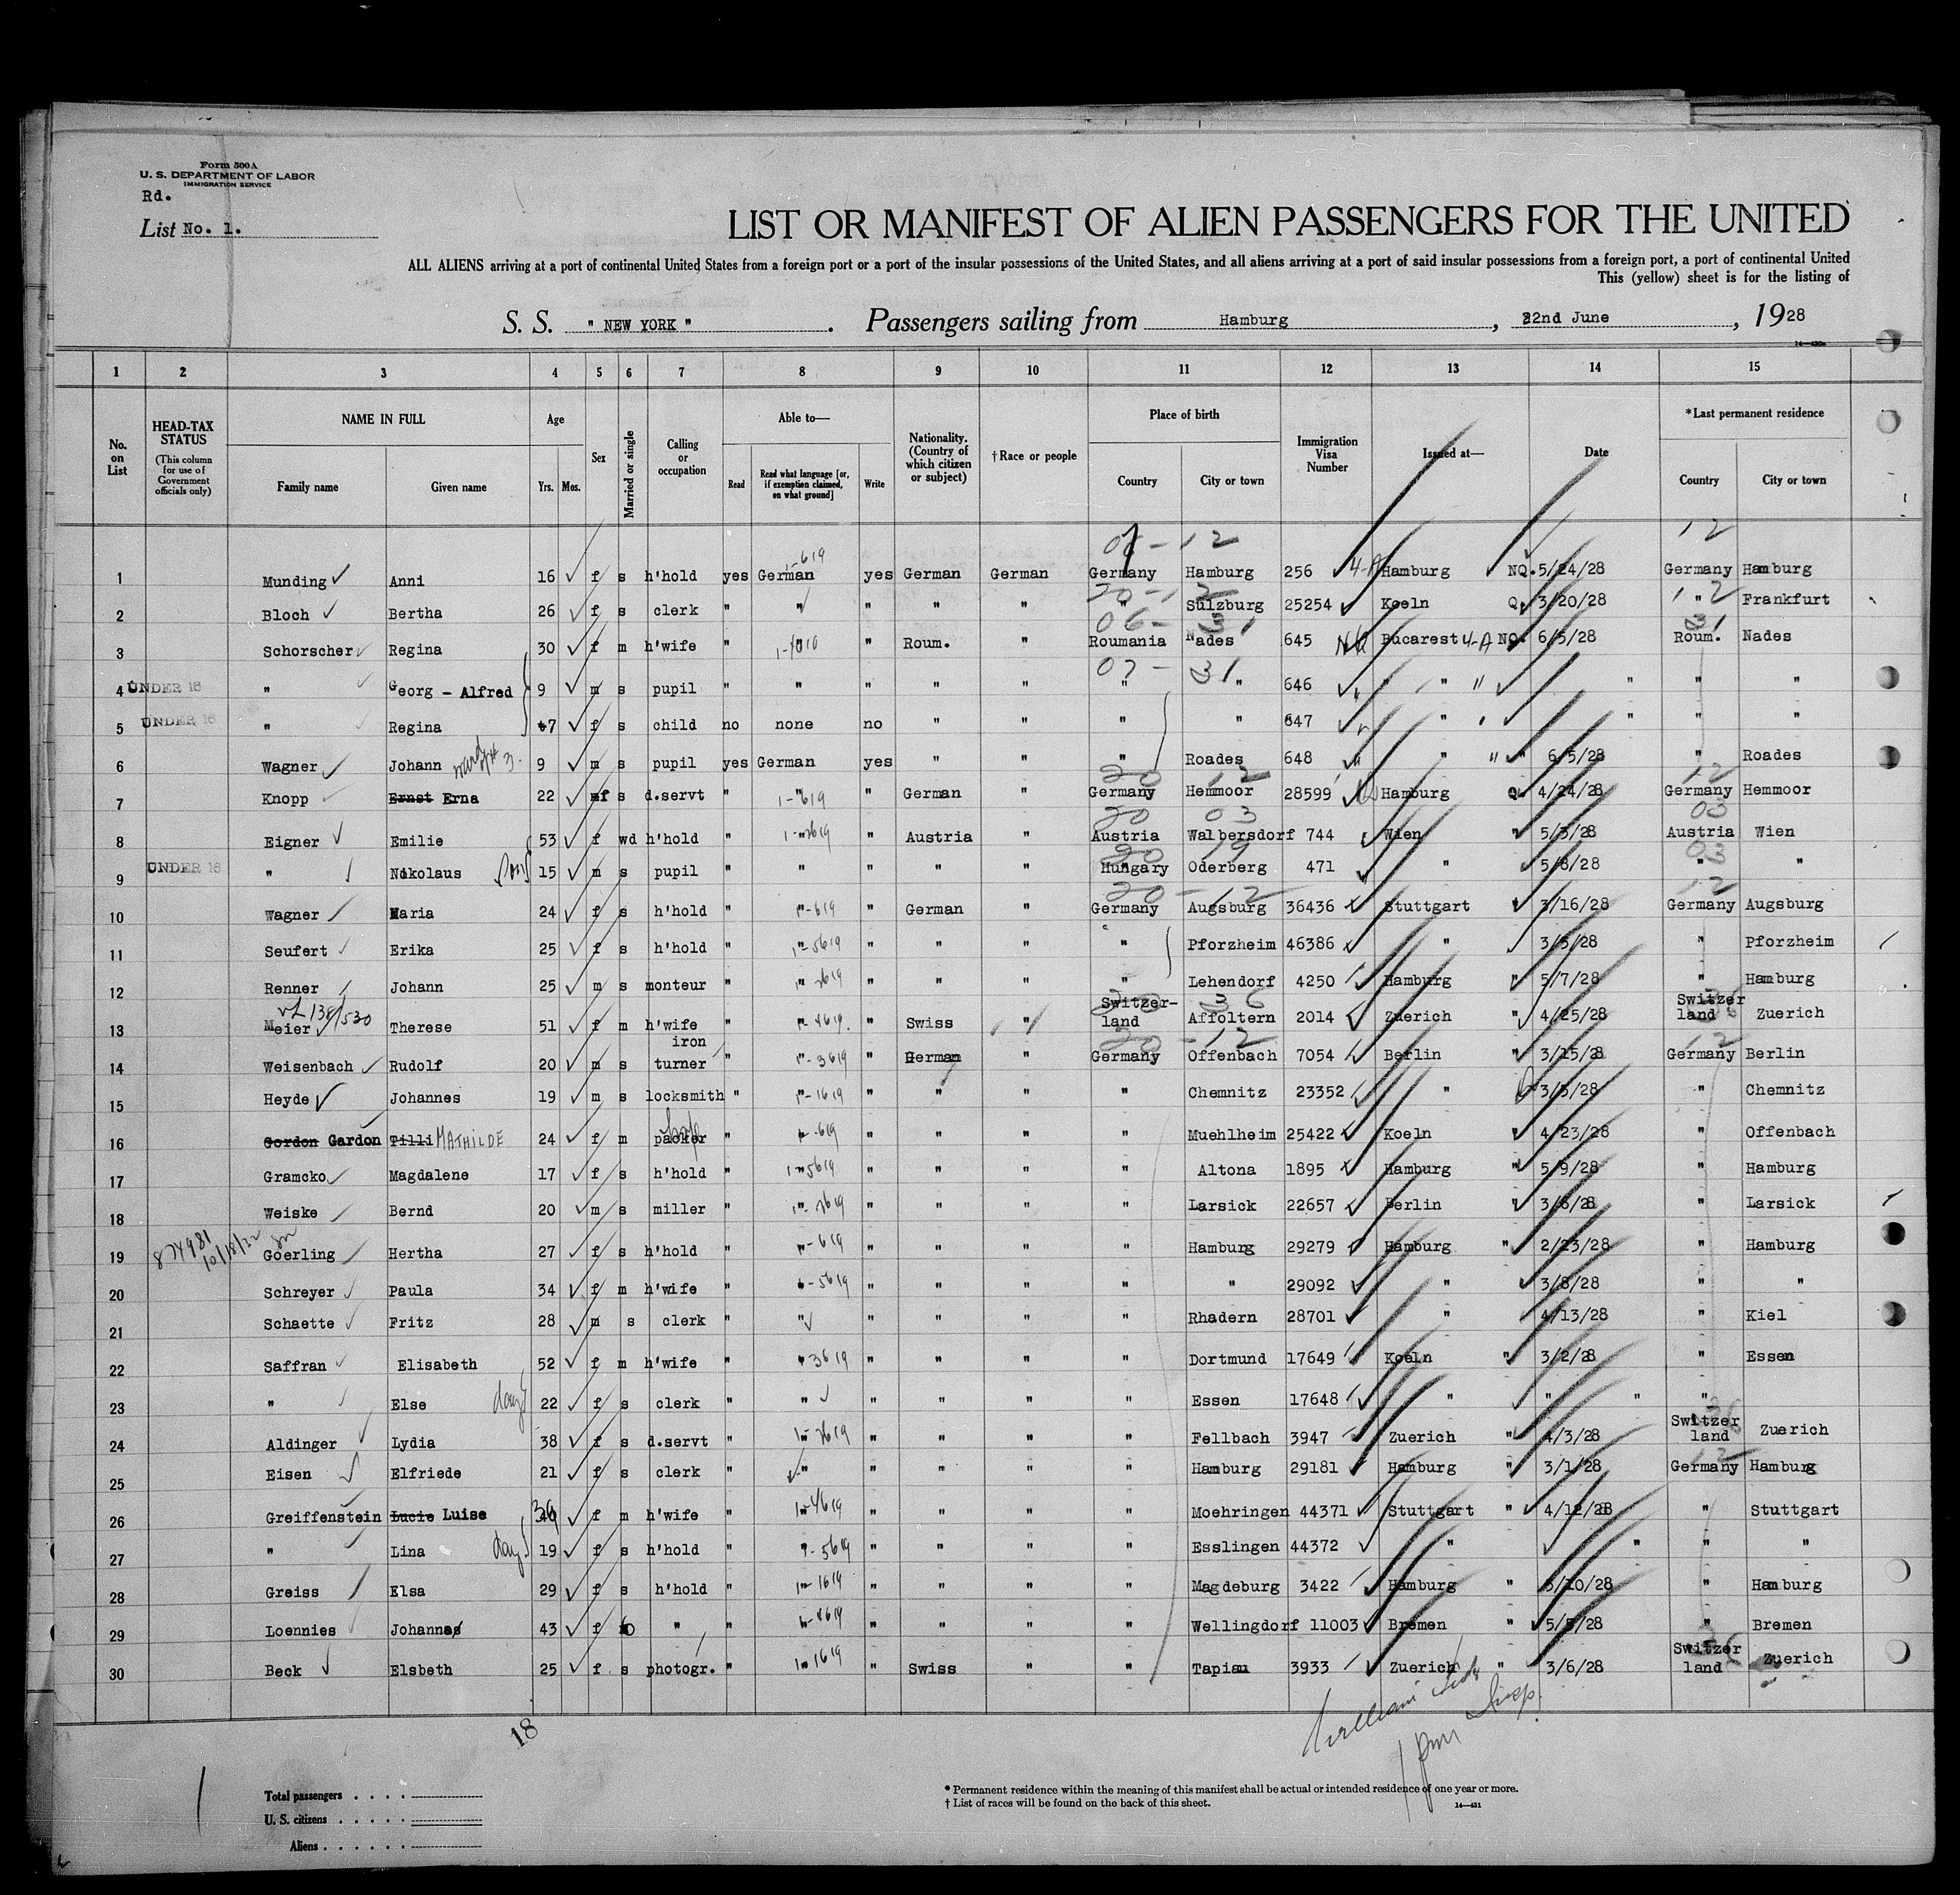 Form 500A
U. S. DEPARTMENT OF LABOR
IMMIGRATION SERVICE
Rd.
List No. 1.
LIST OR MANIFEST OF ALIEN PASSENGERS FOR THE UNITED
ALL ALIENS arriving at a port of continental United States from a foreign port or a port of the insular possessions of the United States, and all aliens arriving at a port of said insular possessions from a foreign port, a port of continental United
This (yellow) sheet is for the listing of
S. S. " NEW YORK " . Passengers sailing from Hamburg , 22nd June , 1928
1 2 3 4 5 6 7 8 9 10 11 12 13 14 15
No. on List HEAD-TAX STATUS (This column for use of Government officials only) NAME IN FULL Family name Given name Age Yrs. Mos. Sex Married or single Calling or occupation Able to— Read Read what language [or, if exemption claimed, on what ground] Write Nationality. (Country of which citizen or subject) †Race or people Place of birth Country City or town Immigration Visa Number Issued at— Date *Last permanent residence Country City or town
1 Munding Anni 16 f s h'hold yes German yes German German Germany Hamburg 256 4-A Hamburg NQ. 5/24/28 Germany Hamburg
2 Bloch Bertha 26 f s clerk " " " " " " Sulzburg 25254 Koeln Q. 3/20/28 " Frankfurt
3 Schorscher Regina 30 f m h'wife " " Roum. " Roumania Nades 645 NQ Bucarest 4-A NQ. 6/5/28 Roum. Nades
4 UNDER 16 " Georg - Alfred 9 m s pupil " " " " " " " 646 " " " " " "
5 UNDER 16 " Regina 7 f s child no none no " " " " 647 " " " " "
6 Wagner Johann 9 m s pupil yes German yes " " " Roades 648 " " 6/5/28 " Roades
7 Knopp Ernst Erna 22 f s d.servt " " " German " Germany Hemmoor 28599 Hamburg Q. 4/24/28 Germany Hemmoor
8 Eigner Emilie 53 f wd h'hold " " " Austria " Austria Walbersdorf 744 Wien " 5/3/28 Austria Wien
9 UNDER 16 " Nikolaus Son 15 m s pupil " " " " " Hungary Oderberg 471 " 5/8/28 " "
10 Wagner Maria 24 f s h'hold " " " German " Germany Augsburg 36436 Stuttgart " 3/16/28 Germany Augsburg
11 Seufert Erika 25 f s h'hold " " " " " " Pforzheim 46386 " 3/5/28 " Pforzheim
12 Renner Johann 25 m s monteur " " " " " " Lehendorf 4250 Hamburg " 5/7/28 " Hamburg
13 Meier Therese 51 f m h'wife " " " Swiss " Switzer-land Affoltern 2014 Zuerich " 4/25/28 Switzer land Zuerich
14 Weisenbach Rudolf 20 m s iron turner " " " German " Germany Offenbach 7054 Berlin " 3/15/28 Germany Berlin
15 Heyde Johannes 19 m s locksmith " " " " " " Chemnitz 23352 " 3/3/28 " Chemnitz
16 Gordon Gardon Tilli MATHILDE 24 f m packer " " " " " " Muehlheim 25422 Koeln " 4/23/28 " Offenbach
17 Gramcko Magdalene 17 f s h'hold " " " " " " Altona 1895 Hamburg " 5/9/28 " Hamburg
18 Weiske Bernd 20 m s miller " " " " " " Larsick 22657 Berlin " 3/6/28 " Larsick
19 Goerling Hertha 27 f s h'hold " " " " " " Hamburg 29279 Hamburg " 2/23/28 " Hamburg
20 Schreyer Paula 34 f m h'wife " " " " " " " 29092 " 3/8/28 " "
21 Schaette Fritz 28 m s clerk " " " " " " Rhadern 28701 " 4/13/28 " Kiel
22 Saffran Elisabeth 52 f m h'wife " " " " " " Dortmund 17649 Koeln " 3/2/28 " Essen
23 " Else daug 22 f s clerk " " " " " " Essen 17648 " " " "
24 Aldinger Lydia 38 f s d.servt " " " " " " Fellbach 3947 Zuerich " 4/3/28 Switzer land Zuerich
25 Eisen Elfriede 21 f s clerk " " " " " " Hamburg 29181 Hamburg " 3/1/28 Germany Hamburg
26 Greiffenstein Lucie Luise 39 f m h'wife " " " " " " Moehringen 44371 Stuttgart " 4/12/28 " Stuttgart
27 " Lina daug 19 f s h'hold " " " " " " Esslingen 44372 " " " "
28 Greiss Elsa 29 f s h'hold " " " " " " Magdeburg 3422 Hamburg " 5/10/28 " Hamburg
29 Loennies Johannes 43 f " " " " " " " Wellingdorf 11003 Bremen " 5/5/28 " Bremen
30 Beck Elsbeth 25 f s photogr. " " " Swiss " " Tapiau 3933 Zuerich " 3/6/28 Switzer land Zuerich
18
Total passengers
U. S. citizens
Aliens
* Permanent residence within the meaning of this manifest shall be actual or intended residence of one year or more.
† List of races will be found on the back of this sheet.
14—431